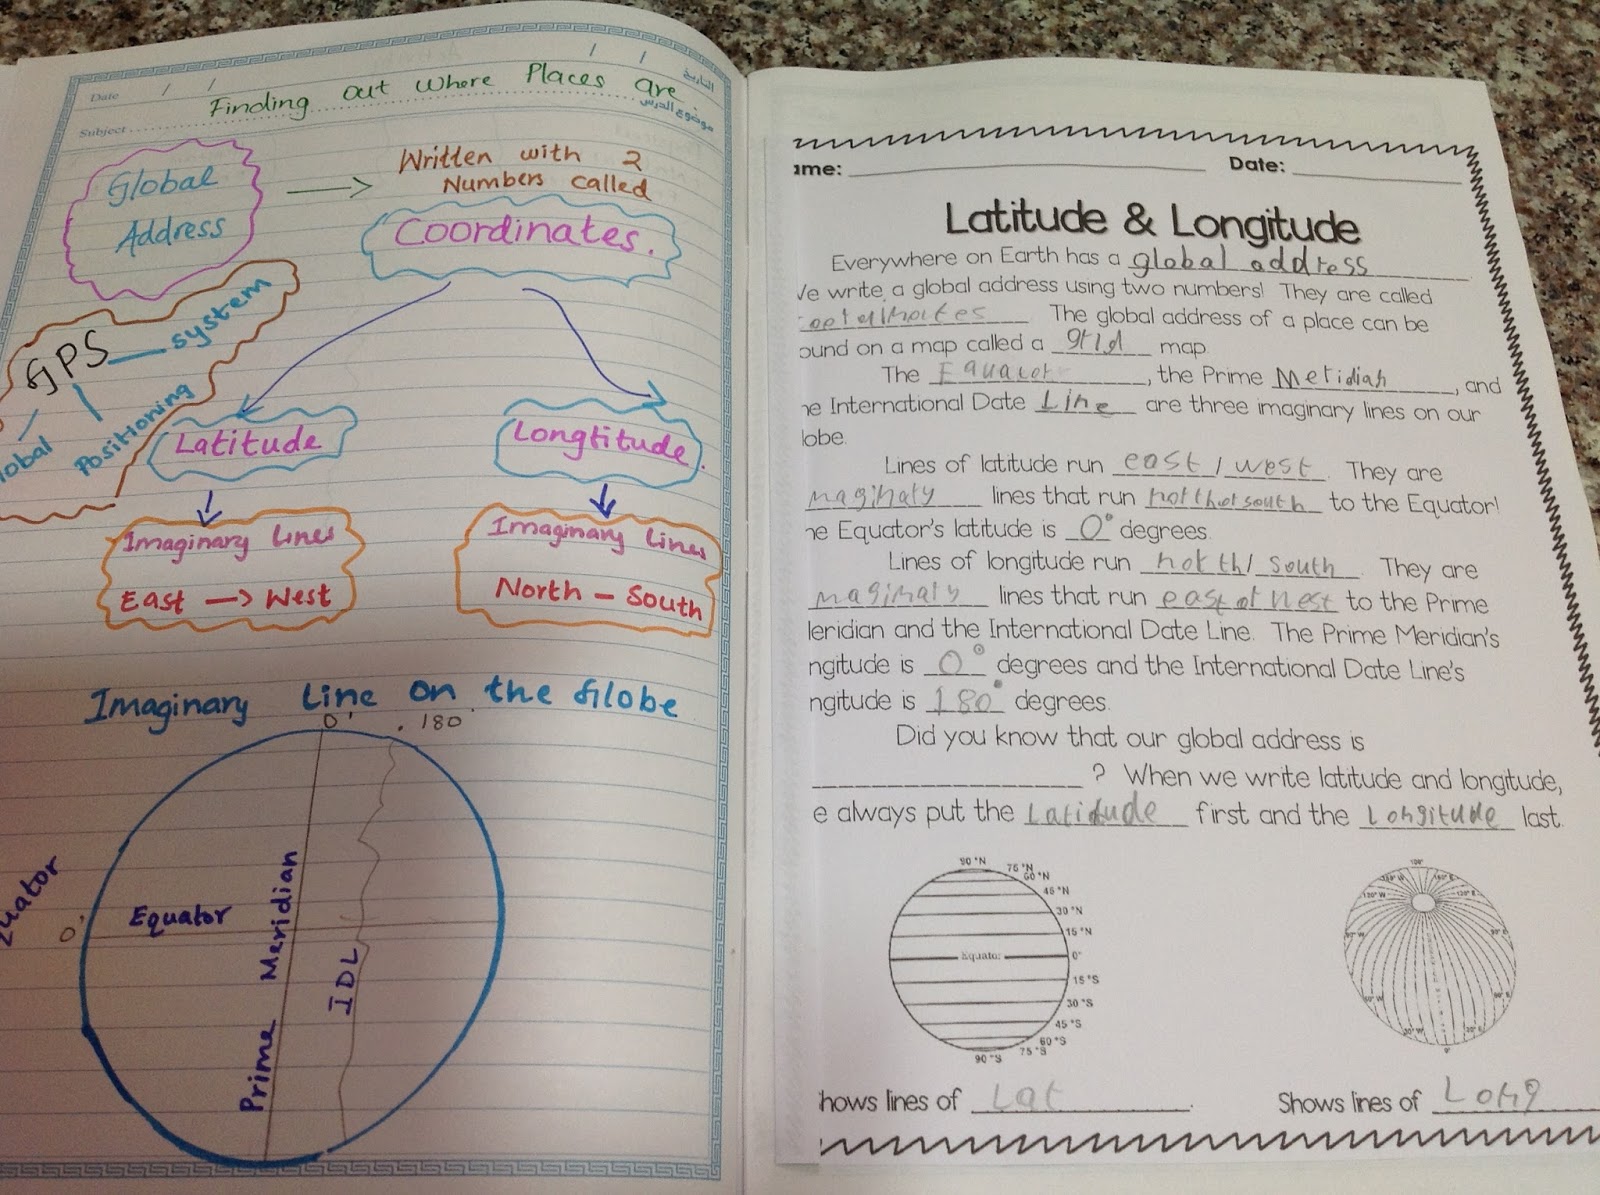 Date / / / / التاريخ
Finding out Where Places are.
Subject موضوع الدرس
Global
Address
Written with 2
Numbers called
Coordinates.
GPS system
Positioning
lobal
Latitude
Longtitude.
Imaginary Lines
East —> West
Imaginary Lines
North – South
Imaginary Line on the Globe
0° 180°
uator
0°
Equator
Prime Meridian
IDL
ame: Date:
Latitude & Longitude
Everywhere on Earth has a global address
Ve write a global address using two numbers! They are called
The global address of a place can be
ound on a map called a grid map.
The Equator, the Prime Meridian, and
he International Date Line are three imaginary lines on our
lobe.
Lines of latitude run east / west. They are
maginary lines that run north or south to the Equator!
he Equator's latitude is 0° degrees.
Lines of longitude run north / south. They are
maginary lines that run east or west to the Prime
Meridian and the International Date Line. The Prime Meridian's
ngitude is 0° degrees and the International Date Line's
ngitude is 180° degrees.
Did you know that our global address is
? When we write latitude and longtitude,
e always put the Latitude first and the Longitude last.
90 °N
75 °N
60 °N
45 °N
30 °N
15 °N
Equator 0°
15 °S
30 °S
45 °S
60 °S
75 °S
90 °S
hows lines of Lat
Shows lines of Long